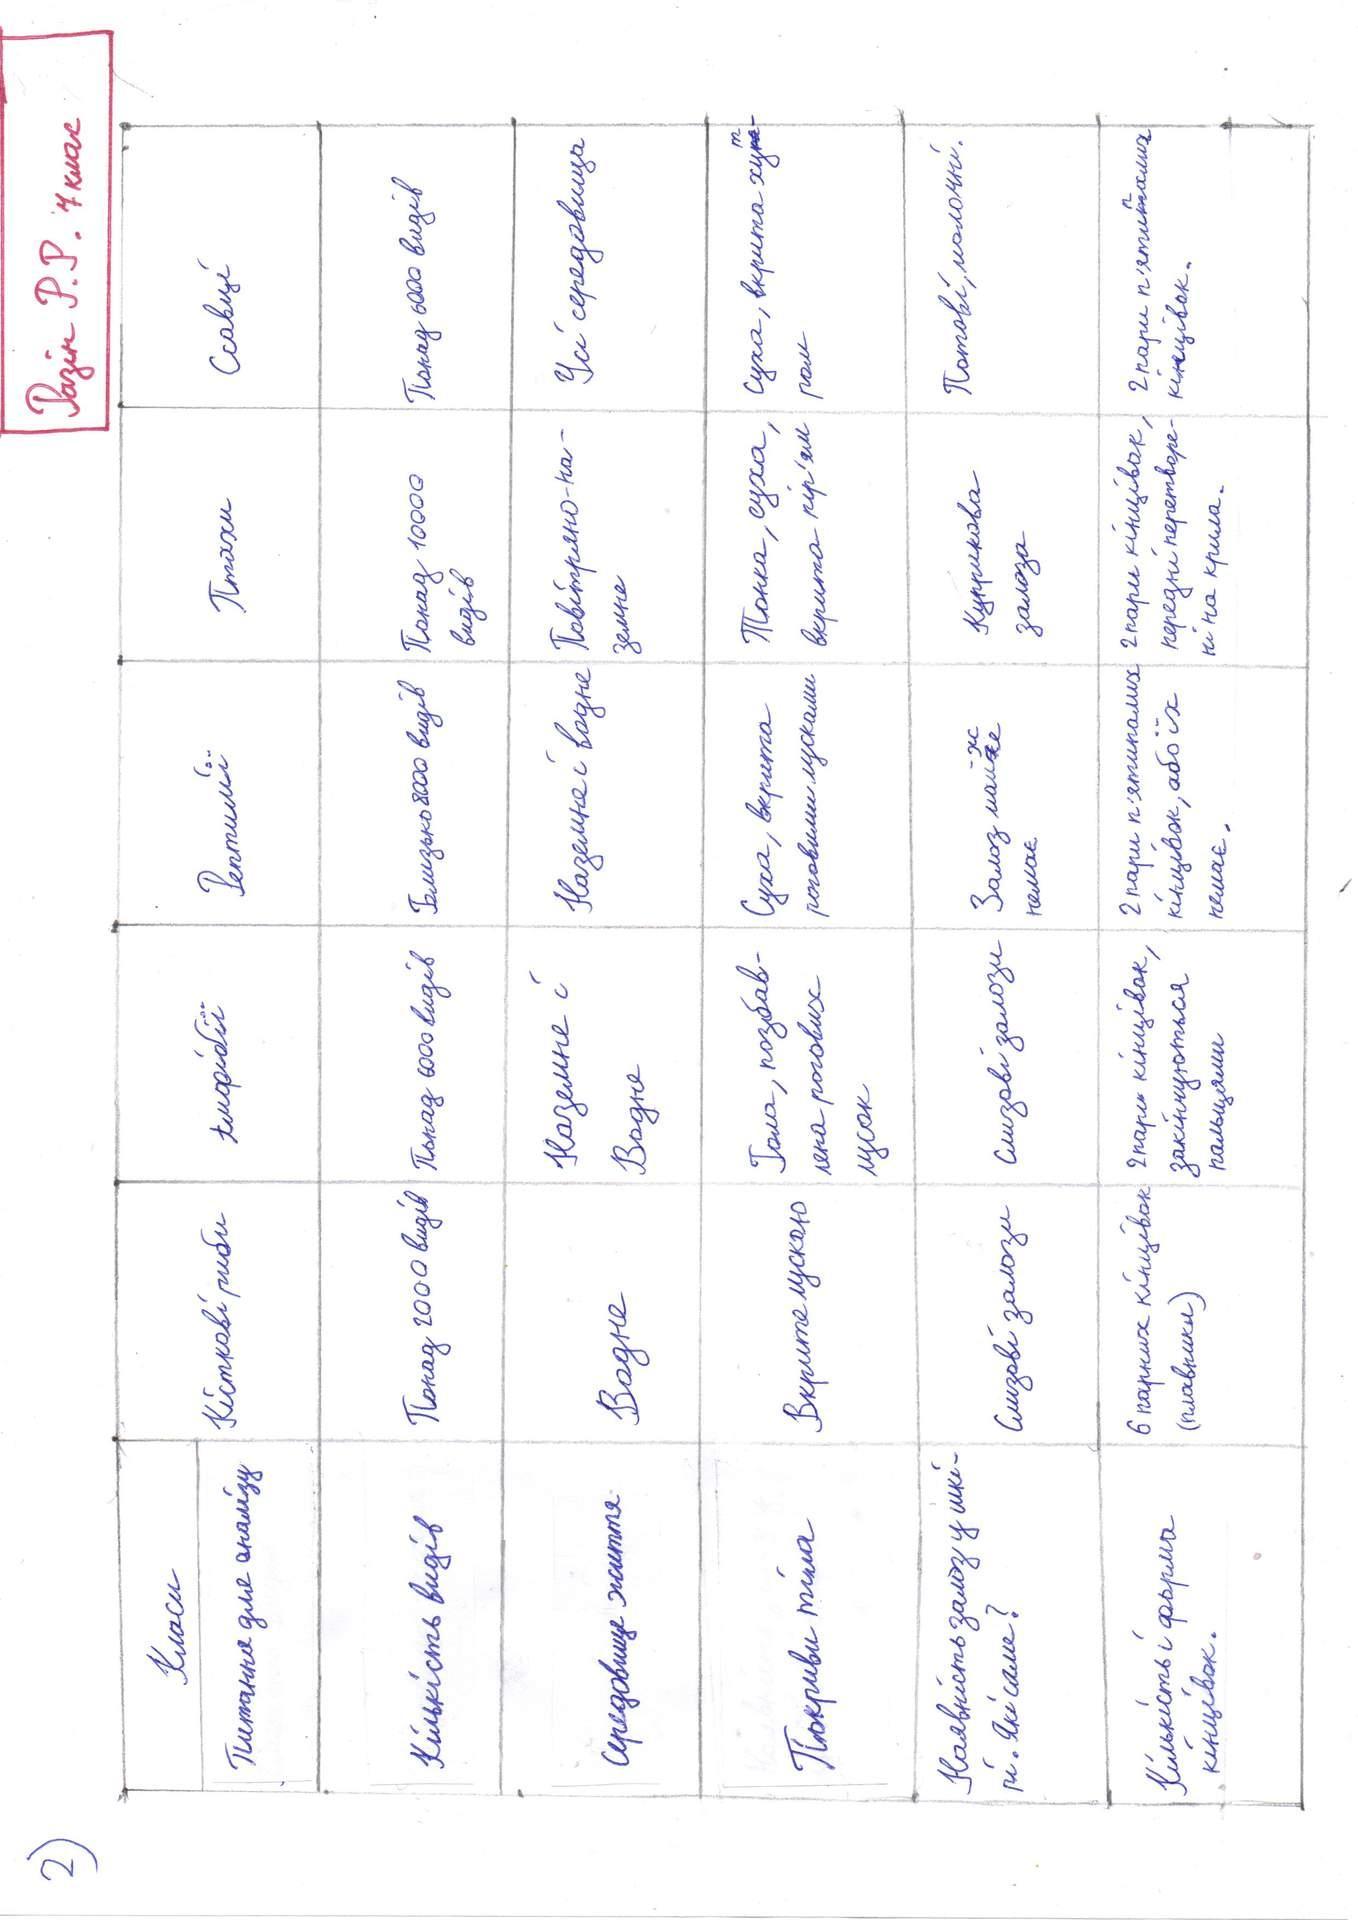 2)
Разін Р.Р. 7 клас
Класи
Питання для аналізу
Кісткові риби
Амфібії
Рептилії
Птахи
Ссавці
Кількість видів
Понад 2000 видів
Понад 6000 видів
Близько 8000 видів
Понад 10000
видів
Понад 6000 видів
Середовище життя
Водне
Наземне і
Водне
Наземне і водне
Повітряно-на-
земне
Усі середовища
Покриви тіла
Вкрите лускою
Гола, позбав-
лена рогових
лусок
Суха, вкрита
роговими лусками
Тонка, суха,
вкрита пір'ям
Суха, вкрита хут-
ром
Наявність залоз у шкі-
рі. Які саме?
Слизові залози
Слизові залози
Залоз майже
немає
Куприкова
залоза
Потові, молочні.
Кількість і форма
кінцівок.
6 парних кінцівок
(плавники)
2 пари кінцівок,
закінчуються
пальцями
2 пари п'ятипалих
кінцівок, або їх
немає.
2 пари кінцівок,
передні перетворе-
ні на крила.
2 пари п'ятипалих
кінцівок.